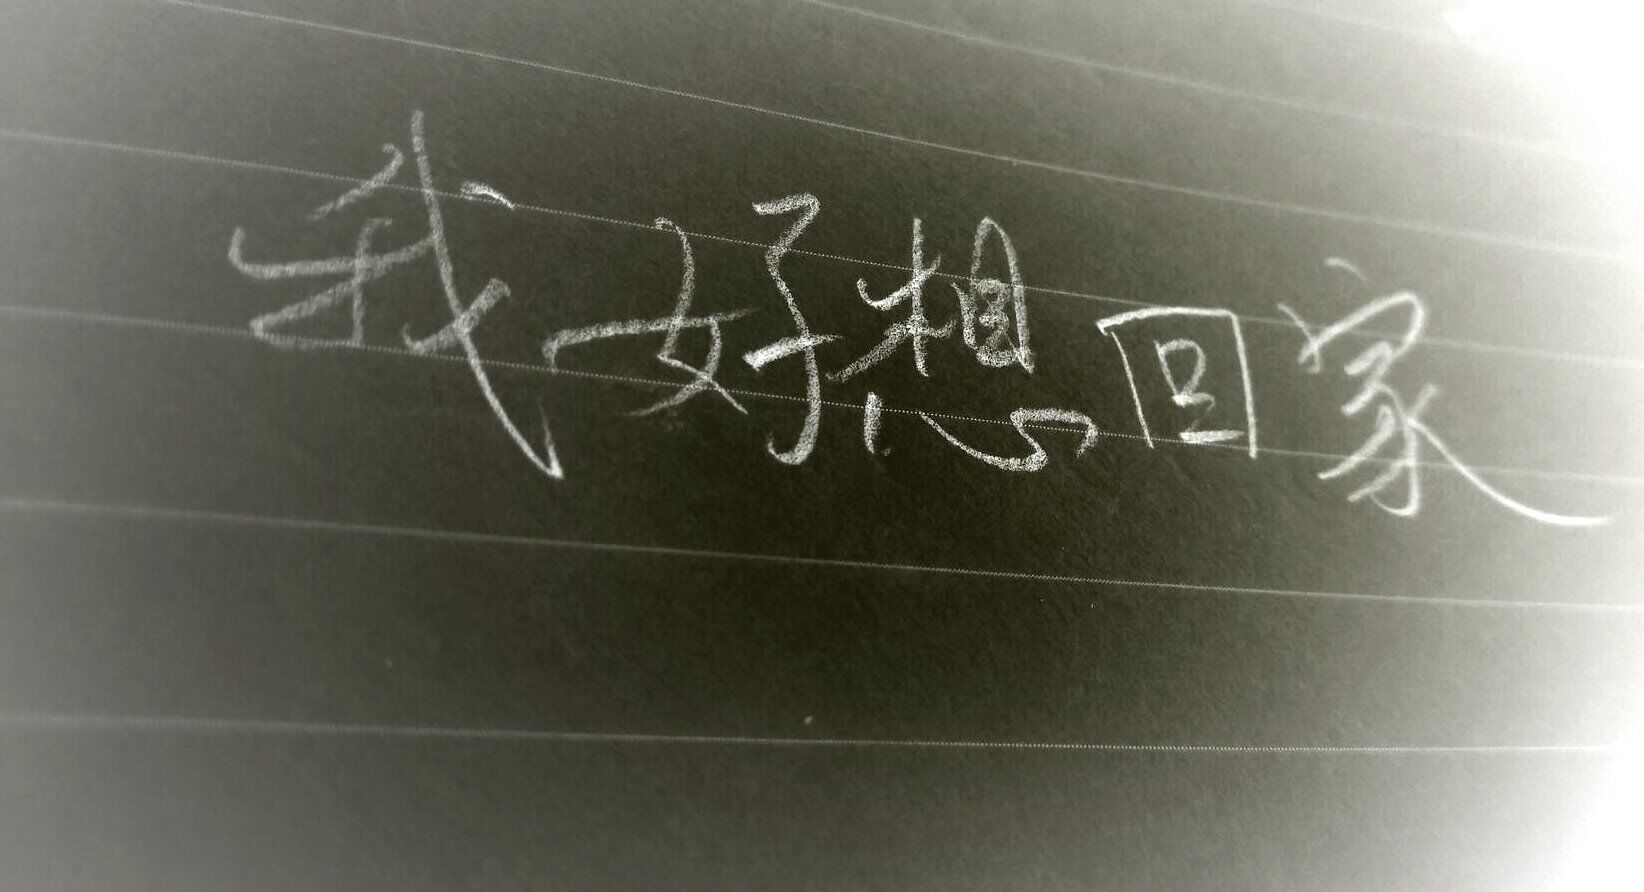 我好想回家